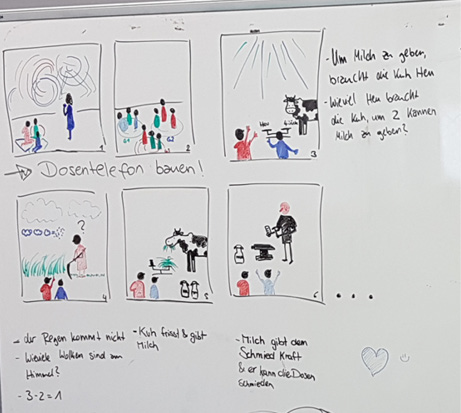 - Um Milch zu geben,
braucht die Kuh Heu
- Wieviel Heu braucht
die Kuh, um 2 Kannen
Milch zu geben?
1
2
3
→ Dosentelefon bauen!
?
4
5
6
...
- der Regen kommt nicht
- Wieviele Wolken sind am
Himmel?
- 3-2=1
- Kuh frisst & gibt
Milch
- Milch gibt dem
Schmied Kraft
& er kann die Dosen
schmieden